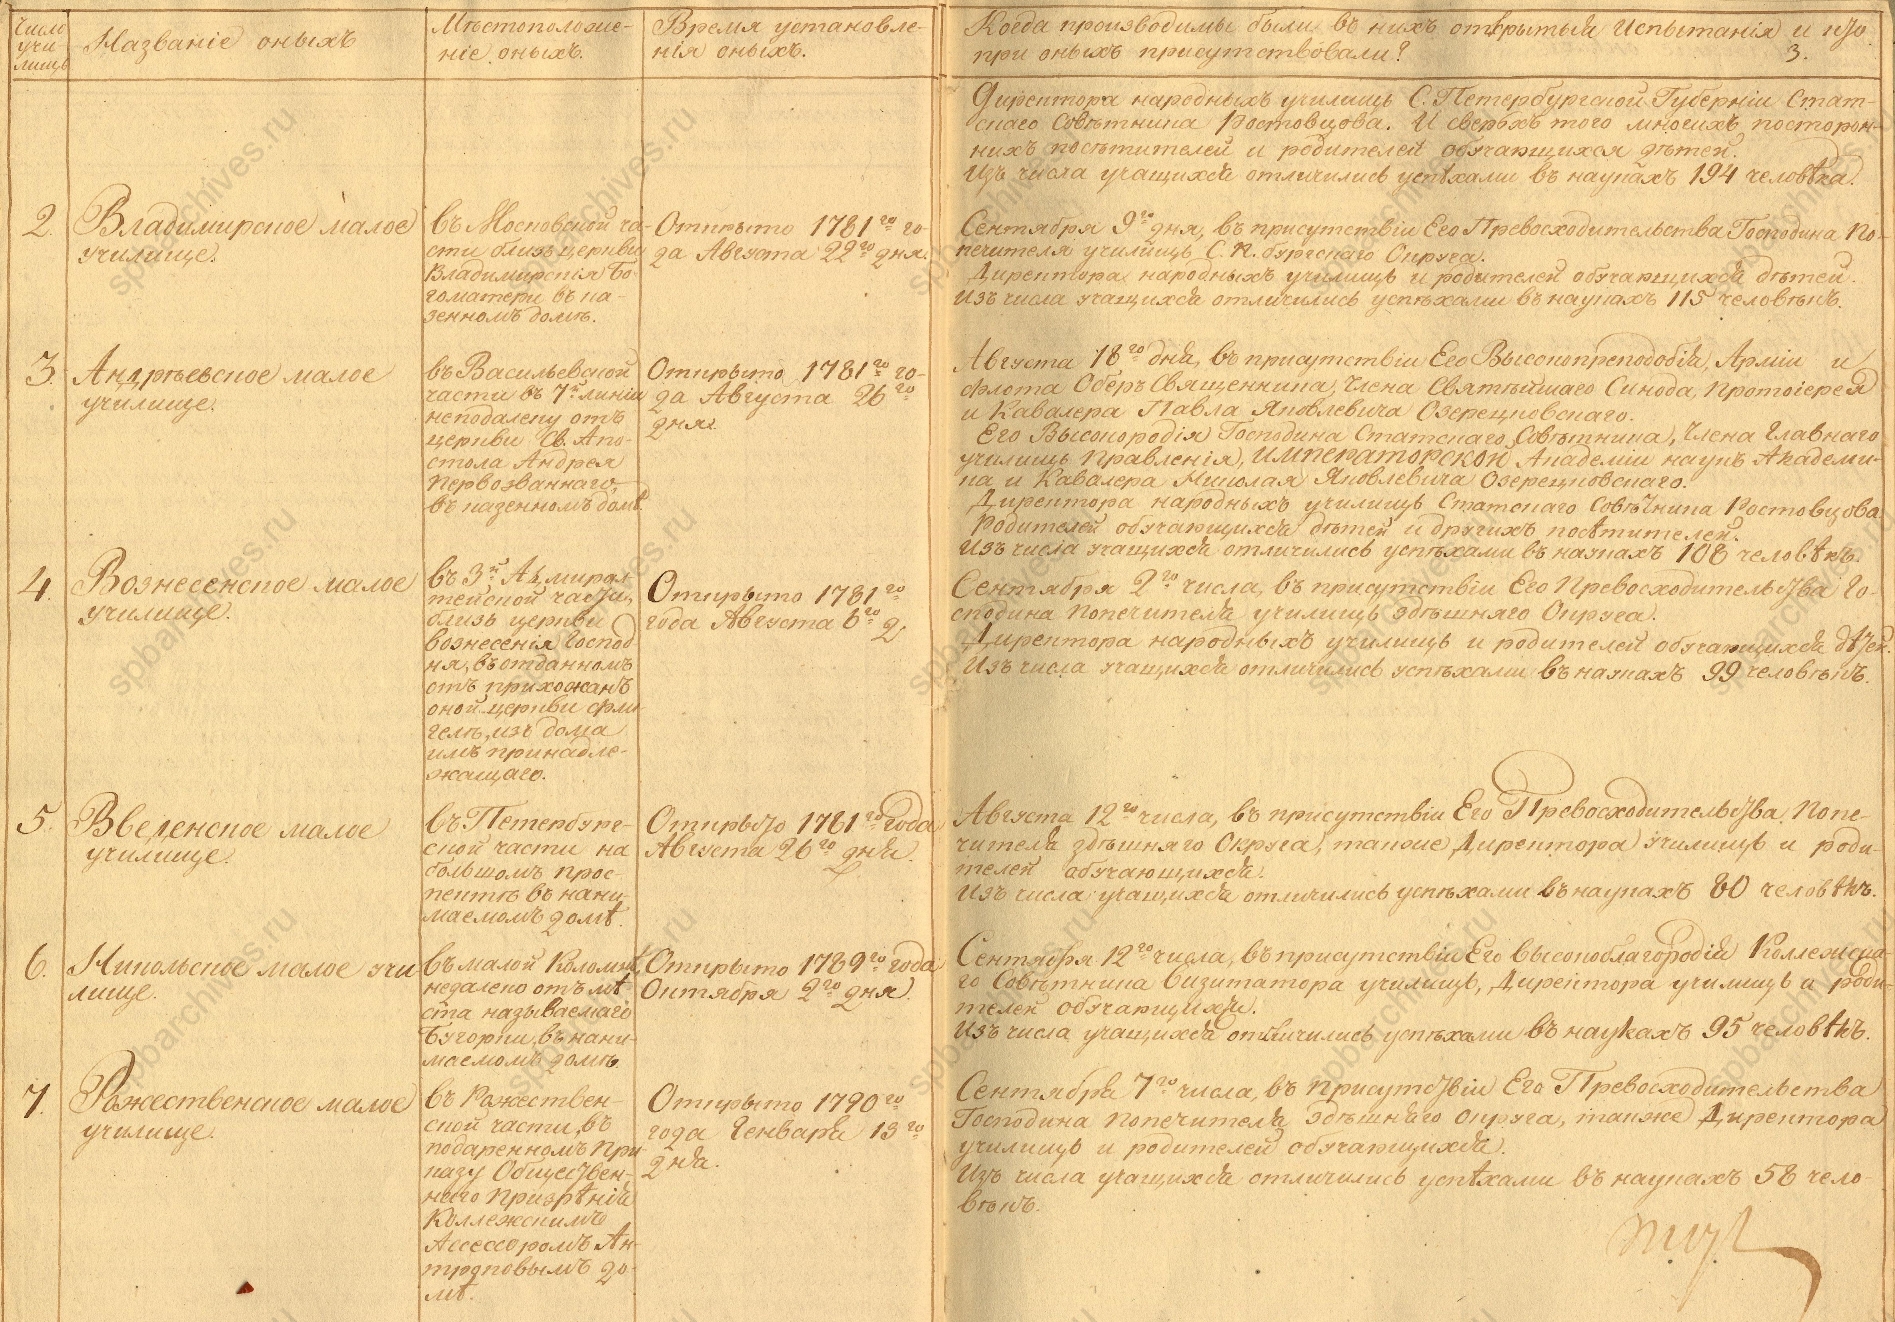 Число учи-лищъ
Названіе оныхъ
Мѣстоположе-
ніе оныхъ.
Время установле-
нія оныхъ.
Когда производимы были въ нихъ открытыя Испытанія и кто
при оныхъ присутствовали?
3.
Директора народныхъ училищъ С. Петербургской Губерніи Стат-
скаго Совѣтника Ростовцова. И сверьхъ того многихъ посторон-
нихъ посѣтителей и родителей обучающихся дѣтей.
Изъ числа учащихся отличились успѣхами въ наукахъ 194 человѣка.
2.
Владимирское малое
училище.
въ Московской ча-
сти близь церькви
Владимирскія Бо-
гоматери въ ка-
зенномъ домѣ.
Открыто 1781го го-
да Августа 22го дня.
Сентября 9го дня, въ присутствіи Его Превосходительства Господина По-
печителя училищъ С. П. бургскаго Округа.
Директора народныхъ училищъ и родителей обучающихся дѣтей.
Изъ числа учащихся отличились успѣхами въ наукахъ 115 человѣкъ.
3.
Андрѣевское малое
училище.
въ Васильевской
части въ 7й линіи
неподалеку отъ
церькви Св. Апо-
стола Андрея
Первозваннаго,
въ казенномъ домѣ.
Открыто 1781го го-
да Августа 26го
дня.
Августа 18го дня, въ присутствіи Его Высокопреподобія, Арміи и
флота Оберъ Священника, Члена Святѣйшаго Синода, Протоіерея
и Кавалера Павла Яковлевича Озерецковскаго.
Его Высокородія Господина Статскаго Совѣтника, Члена Главнаго
училищъ Правленія, ИМПЕРАТОРСКОЙ Академіи наукъ Академи-
ка и Кавалера Николая Яковлевича Озерецковскаго.
Директора народныхъ училищъ Статскаго Совѣтника Ростовцова
Родителей обучающихся дѣтей и другихъ посѣтителей.
Изъ числа учащихся отличились успѣхами въ наукахъ 108 человѣкъ.
4.
Вознесенское малое
училище.
въ 3й Адмирал-
тейской части,
близь церькви
вознесенія Господ-
ня, въ отданномъ
отъ прихожанъ
оной церькви фли-
гелѣ, изъ дома
имъ принадле-
жащаго.
Открыто 1781го
года Августа 6го д.
Сентября 2го числа, въ присутствіи Его Превосходительства Го-
сподина Попечителя училищъ здѣшняго Округа.
Директора народныхъ училищъ и родителей обучающихся дѣтей.
Изъ числа учащихся отличились успѣхами въ наукахъ 99 человѣкъ.
5.
Введенское малое
училище.
въ Петербург-
ской части на
большомъ прос-
пектѣ въ нани-
маемомъ домѣ.
Открыто 1781го года
Августа 26го дня.
Августа 12го числа, въ присутствіи Его Превосходительства Попе-
чителя здѣшняго Округа, также Директора училищъ и роди-
телей обучающихся.
Изъ числа учащихся отличились успѣхами въ наукахъ 80 человѣкъ.
6.
Никольское малое учи-
лище.
въ малой Коломнѣ,
недалеко отъ мѣ-
ста называемаго
Бугорки, въ нани-
маемомъ домѣ.
Открыто 1789го года
Октября 2го дня.
Сентября 12го числа, въ присутствіи Его высокоблагородія Коллежска-
го Совѣтника Визитатора училищъ, Директора училищъ и роди-
телей обучающихся.
Изъ числа учащихся отличились успѣхами въ наукахъ 95 человѣкъ.
7.
Рожественское малое
училище.
въ Рожествен-
ской части, въ
подаренномъ При-
казу Обществен-
наго Призрѣнія
Коллежскимъ
Ассессоромъ Ан-
троповымъ до-
мѣ.
Открыто 1790го
года Генваря 13го
дня.
Сентября 7го числа, въ присутствіи Его Превосходительства
Господина Попечителя здѣшняго округа, также Директора
училищъ и родителей обучающихся.
Изъ числа учащихся отличились успѣхами въ наукахъ 58 чело-
вѣкъ.
spbarchives.ru